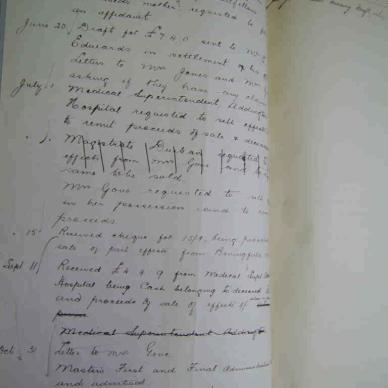 mother requested to
an affidavit
June 20 Draft for £7.4.0 sent to Mr
Edwards in settlement of his
Letter to Mrs Jones and Mr
asking if they have any claim
July 1 Medical Superintendent Addington
Hospital requested to sell effects
to remit proceeds of sale &
Magistrate Durban requested
effects from Mrs Gove and to
same to be sold.
Mrs Gove requested to sell
in her possession and to
proceeds.
" 15 Received cheque for 15/9, being proceeds
sale of part effects from
Sept 11 Received £4.4.9 from Medical Supt
Hospital being Cash belonging to deceased
and proceeds by sale of effects of
Medical Superintendent Addington
Oct 31 Letter to Mrs Gove
Masters First and Final
and admitted